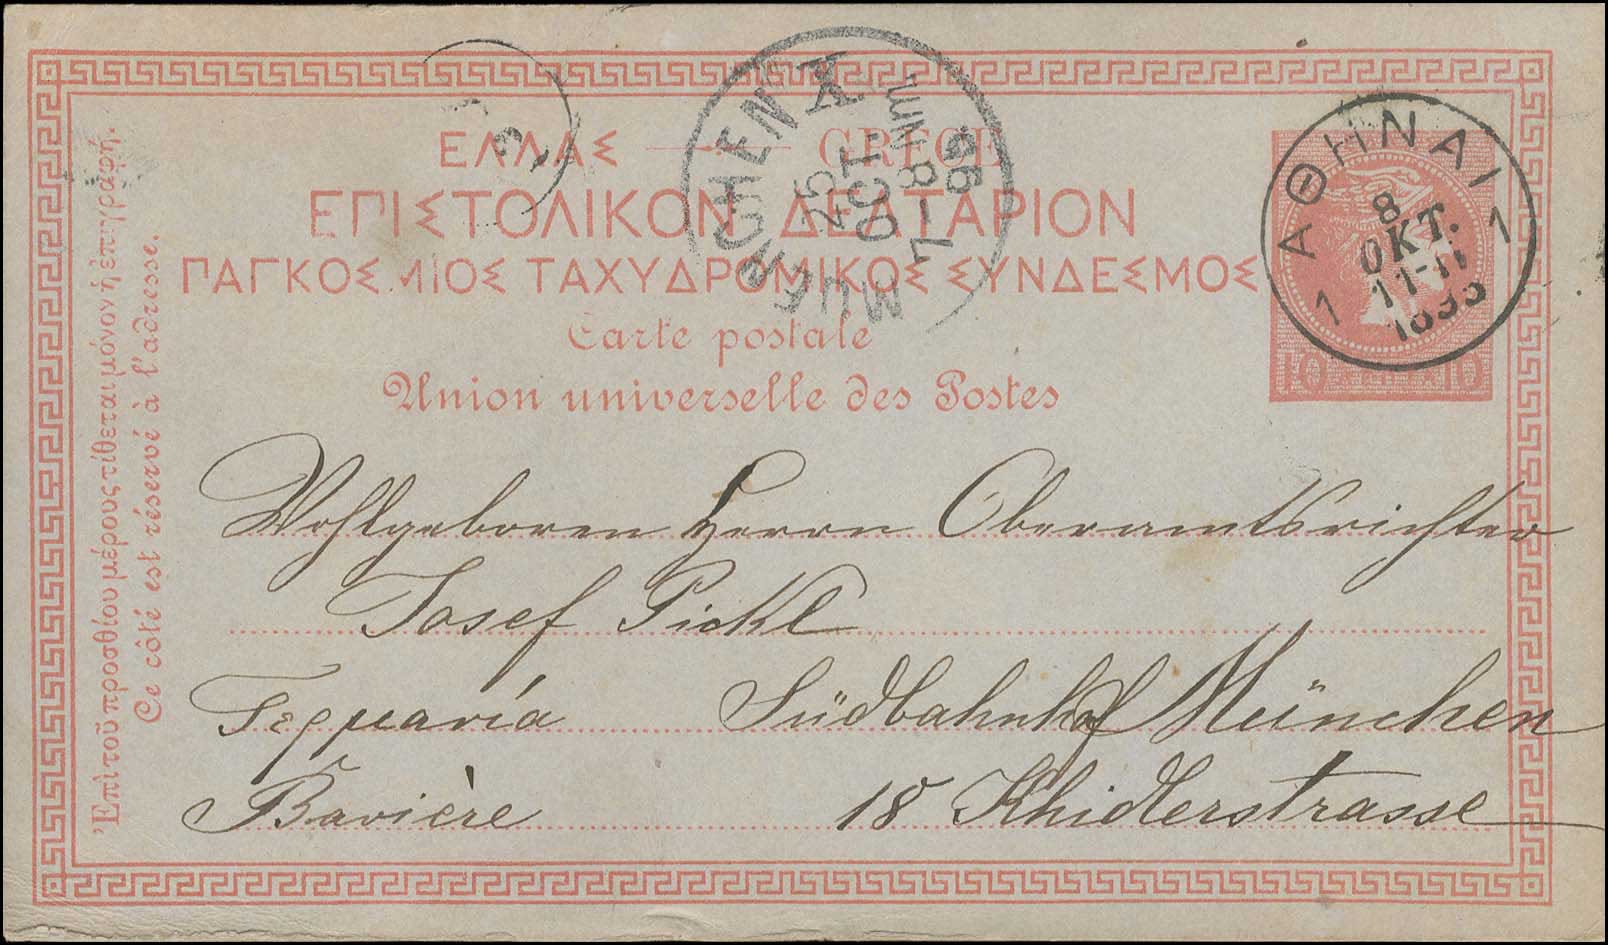 ΕΛΛΑΣ — GRECE
ΕΠΙΣΤΟΛΙΚΟΝ ΔΕΛΤΑΡΙΟΝ
ΠΑΓΚΟΣΜΙΟΣ ΤΑΧΥΔΡΟΜΙΚΟΣ ΣΥΝΔΕΣΜΟΣ
Carte postale
Union universelle des Postes
Ἐπὶ τοῦ προσθίου μέρους τίθεται μόνον ἡ ἐπιγραφή.
Ce côté est réservé à l'adresse.
MUENCHEN X
25
OCT.
7-8 NM.
95
ΑΘΗΝΑΙ
1 1
8
ΟΚΤ.
11-Π
10 10
Wohlgeboren Herrn Oberamtsrichter
Josef Pickl
Γερμανία Südbahnhof München
Bavière 18 Khidlerstrasse